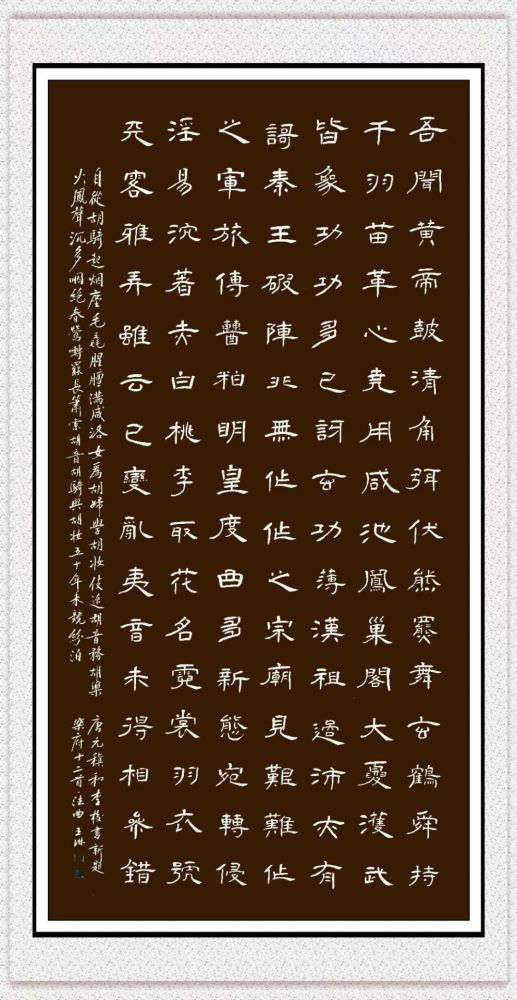 吾聞黃帝鼓清角弭伏熊羆舞玄鶴舜持
千羽苗革心堯用咸池鳳巢閣大夏濩武
皆象功功多已訝玄功薄漢祖過沛亦有
謌秦王破陣非無作作之宗廟見艱難作
之軍旅傳糟粕明皇度曲多新態宛轉侵
淫易沉著赤白桃李取花名霓裳羽衣號
天客雅弄雖云已變亂夷音未得相參錯
自從胡騎起烟塵毛毳腥膻滿咸洛女為胡婦學胡妝伎進胡音務胡樂
火鳳聲沉多咽絕春鶯囀罷長蕭索胡音胡騎與胡妝五十年來競紛泊
唐元稹和李校書新題
樂府十二首法曲王琳